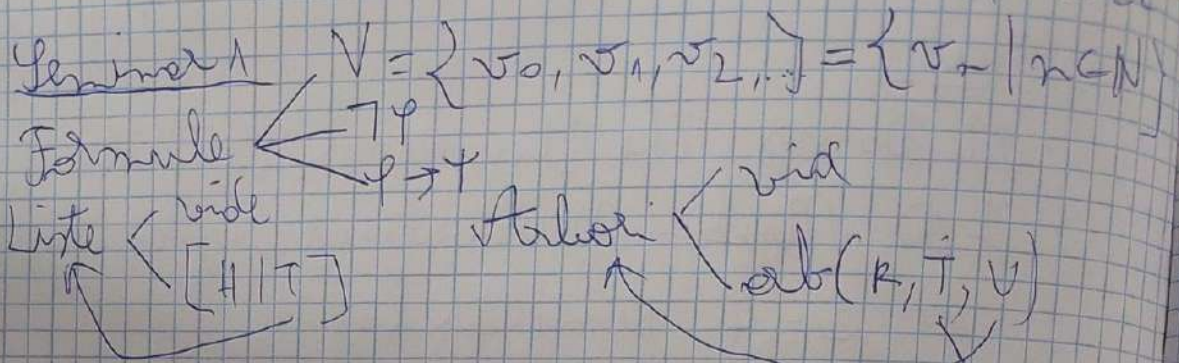 Seminar 1 V = {v0, v1, v2, ...} = {vn | n ∈ N}
Formule ¬φ
φ → ψ
Liste vidă Arbori vid
[H|T] arb(R, T, U)